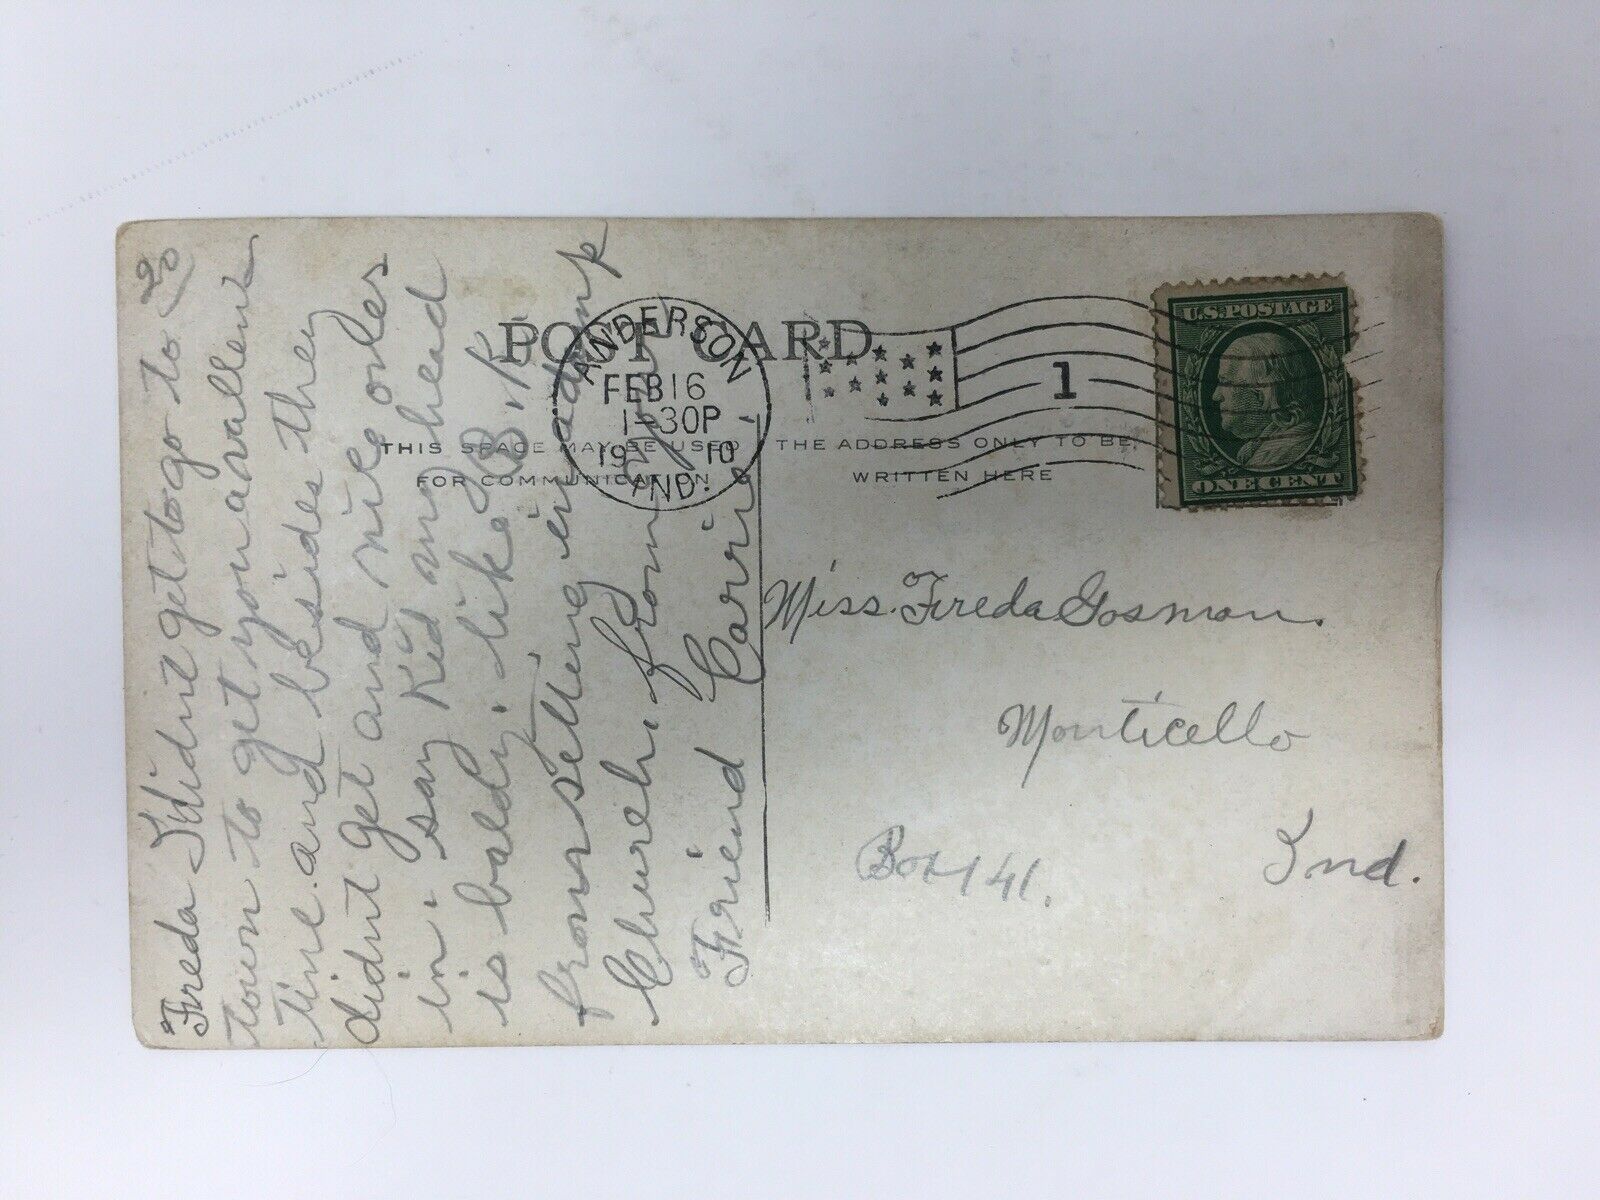 POST CARD
THIS SPACE MAY BE USED
FOR COMMUNICATION
THE ADDRESS ONLY TO BE
WRITTEN HERE
ANDERSON
FEB 16
1-30P
1910
IND.
1
U.S. POSTAGE
ONE CENT
Freda I didnt get to go to
town to get you a vallen
tine. and besides they
didnt get and nice ones
in. say Kid my head
is baldy. like B. K.
from selling
Church. from
Friend Carrie
Miss. Freda Gosman.
Monticello
Box 141.
Ind.